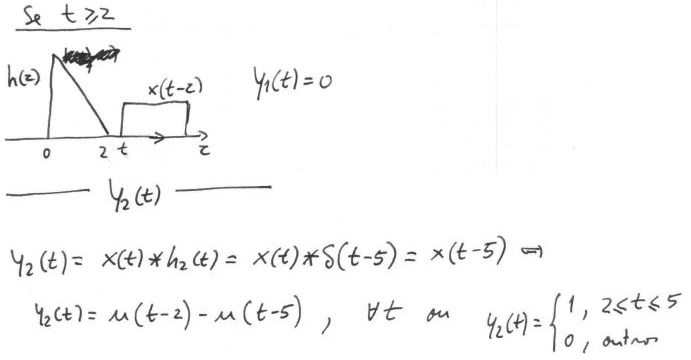 Se t ⩾ 2
h(z)
x(t-z)
y₁(t) = 0
0 2 t z
y₂(t)
y₂(t) = x(t) * h₂(t) = x(t) * δ(t-5) = x(t-5) ⇒
y₂(t) = u(t-2) - u(t-5) , ∀t ou y₂(t) = { 1 , 2 ≤ t ≤ 5
0 , outros